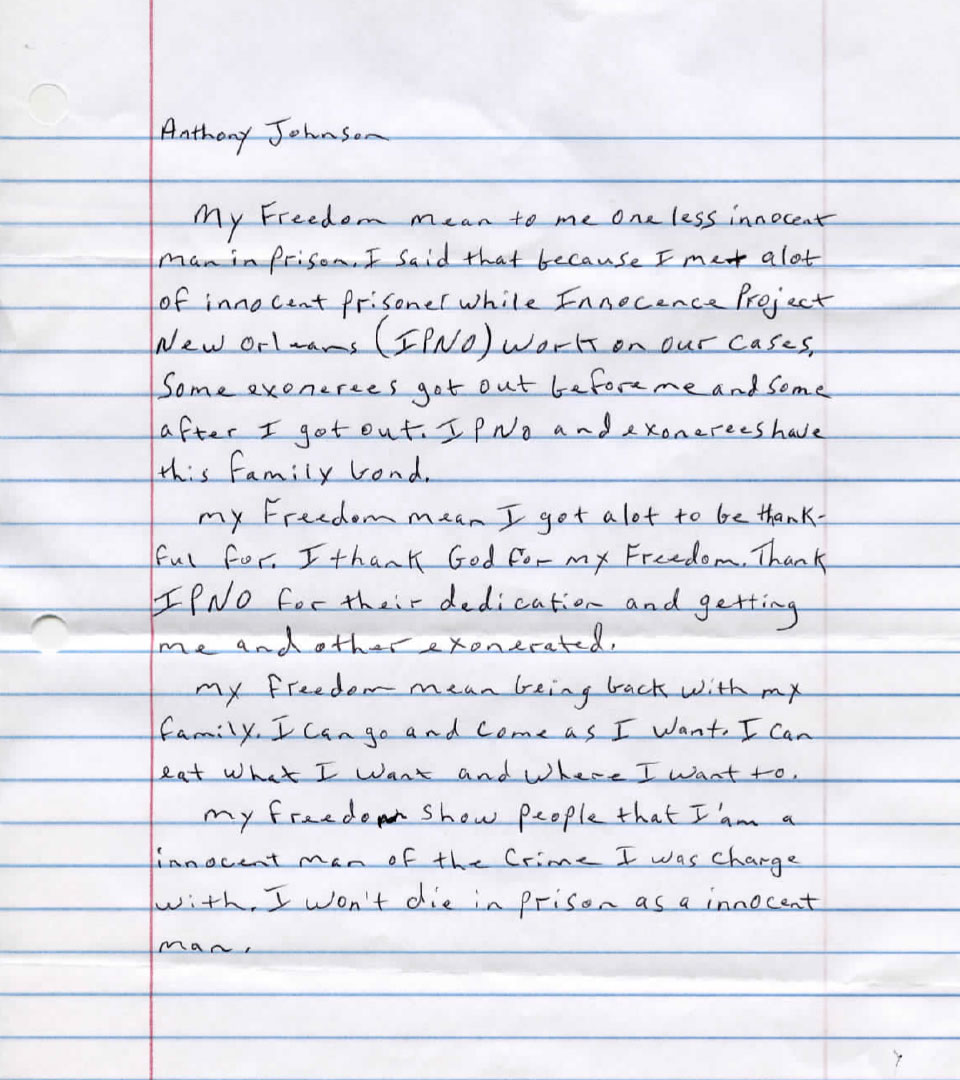 Anthony Johnson
My Freedom mean to me one less innocent
man in prison. I said that because I met alot
of innocent prisoner while Innocence Project
New Orleans (IPNO) work on our cases,
Some exonerees got out before me and some
after I got out. IPNO and exonerees have
this family bond.
my Freedom mean I got alot to be thank-
ful for. I thank God for my Freedom. Thank
IPNO for their dedication and getting
me and other exonerated.
my freedom mean being back with my
family. I can go and come as I want. I can
eat what I want and where I want to.
my freedom show people that I'am a
innocent man of the crime I was charge
with. I won't die in prison as a innocent
man.